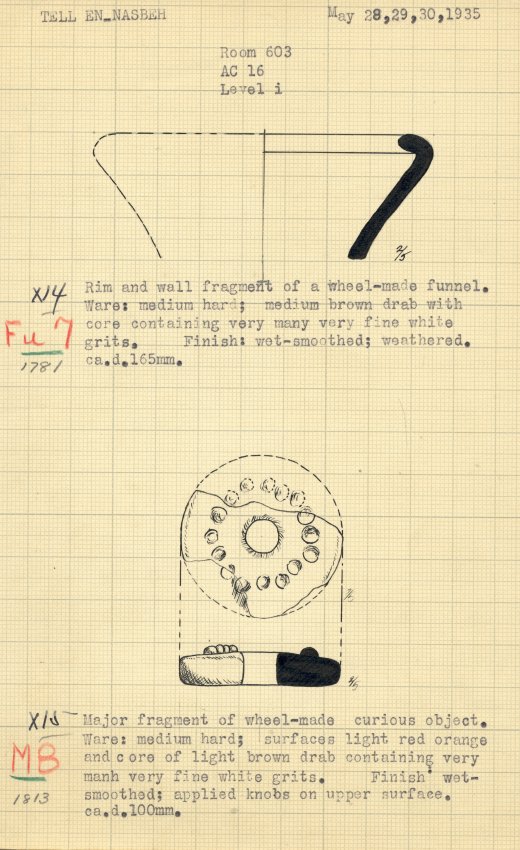 TELL EN_NASBEH May 28,29,30,1935
Room 603
AC 16
Level i
2/5
x14
Rim and wall fragment of a wheel-made funnel.
Ware: medium hard; medium brown drab with
core containing very many very fine white
grits. Finish: wet-smoothed; weathered.
ca.d.165mm.
Fu 7
1781
2/5
2/5
x15
Major fragment of wheel-made curious object.
Ware: medium hard; surfaces light red orange
and core of light brown drab containing very
manh very fine white grits. Finish: wet-
smoothed; applied knobs on upper surface.
ca.d.100mm.
MB
1813